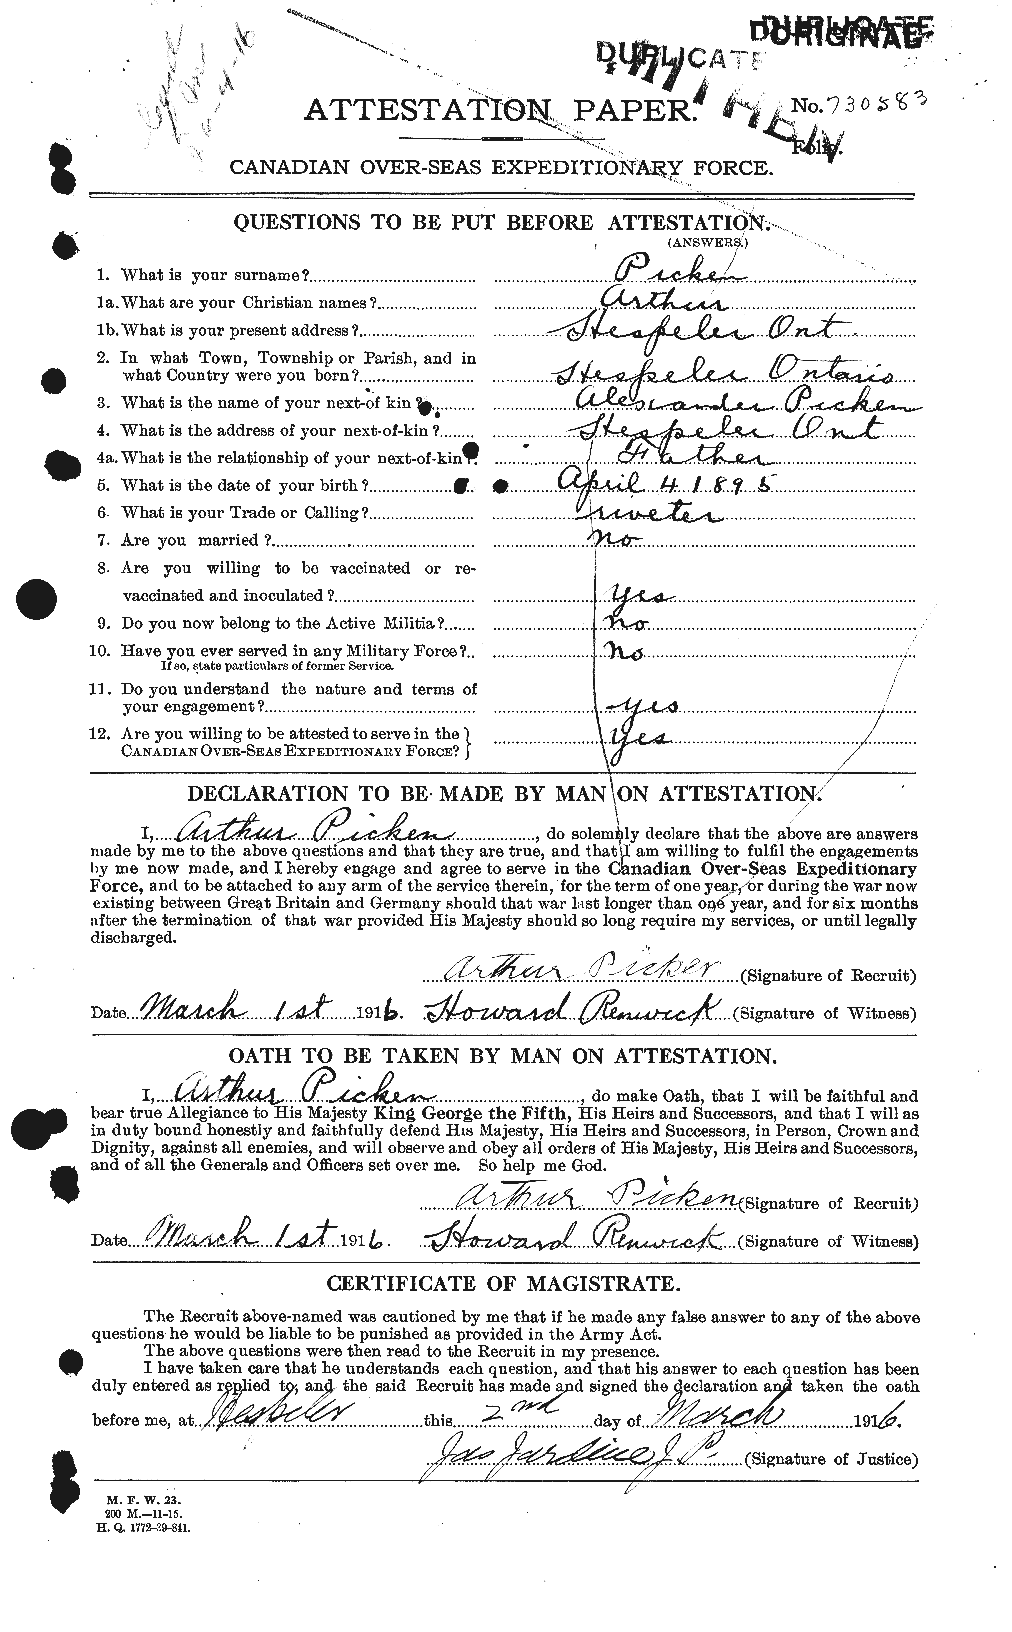 DUPLICATE
ORIGINAL
DUPLICATE
ATTESTATION PAPER.
No. 730583
Folio.
CANADIAN OVER-SEAS EXPEDITIONARY FORCE.
QUESTIONS TO BE PUT BEFORE ATTESTATION.
(ANSWERS.)
1. What is your surname? Picken
1a. What are your Christian names? Arthur
1b. What is your present address? Hespeler Ont
2. In what Town, Township or Parish, and in
what Country were you born? Hespeler Ontario
3. What is the name of your next-of kin? Alexander Picken
4. What is the address of your next-of-kin? Hespeler Ont
4a. What is the relationship of your next-of-kin? Father
5. What is the date of your birth? April 4 1895
6. What is your Trade or Calling? riveter
7. Are you married? no
8. Are you willing to be vaccinated or re-
vaccinated and inoculated? yes
9. Do you now belong to the Active Militia? no
10. Have you ever served in any Military Force? No
If so, state particulars of former Service.
11. Do you understand the nature and terms of
your engagement? yes
12. Are you willing to be attested to serve in the
CANADIAN OVER-SEAS EXPEDITIONARY FORCE? Yes
DECLARATION TO BE MADE BY MAN ON ATTESTATION.
I, Arthur Picken, do solemnly declare that the above are answers
made by me to the above questions and that they are true, and that I am willing to fulfil the engagements
by me now made, and I hereby engage and agree to serve in the Canadian Over-Seas Expeditionary
Force, and to be attached to any arm of the service therein, for the term of one year, or during the war now
existing between Great Britain and Germany should that war last longer than one year, and for six months
after the termination of that war provided His Majesty should so long require my services, or until legally
discharged.
Arthur Picken (Signature of Recruit)
Date March 1st 1916. Howard Renwick (Signature of Witness)
OATH TO BE TAKEN BY MAN ON ATTESTATION.
I, Arthur Picken, do make Oath, that I will be faithful and
bear true Allegiance to His Majesty King George the Fifth, His Heirs and Successors, and that I will as
in duty bound honestly and faithfully defend His Majesty, His Heirs and Successors, in Person, Crown and
Dignity, against all enemies, and will observe and obey all orders of His Majesty, His Heirs and Successors,
and of all the Generals and Officers set over me. So help me God.
Arthur Picken (Signature of Recruit)
Date March 1st 1916. Howard Renwick (Signature of Witness)
CERTIFICATE OF MAGISTRATE.
The Recruit above-named was cautioned by me that if he made any false answer to any of the above
questions he would be liable to be punished as provided in the Army Act.
The above questions were then read to the Recruit in my presence.
I have taken care that he understands each question, and that his answer to each question has been
duly entered as replied to, and the said Recruit has made and signed the declaration and taken the oath
before me, at Hespeler this 2nd day of March 1916.
Jas Jardine J. P. (Signature of Justice)
M. F. W. 23.
200 M.—11-15.
H. Q. 1772-39-841.